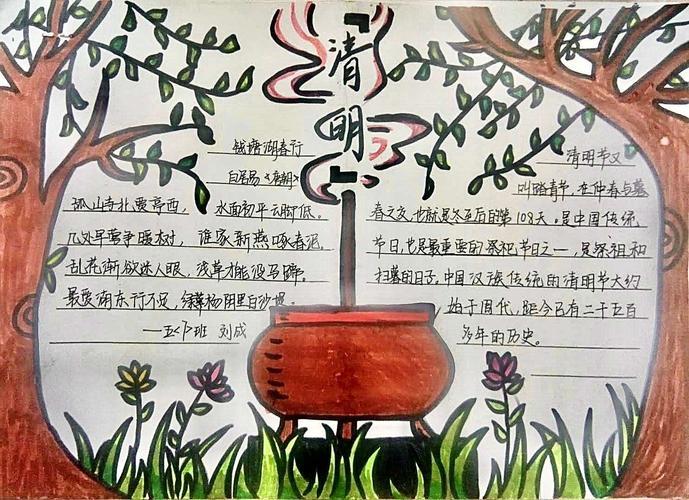 清
明
钱塘湖春行
白居易〈唐朝〉
孤山寺北贾亭西，水面初平云脚低。
几处早莺争暖树，谁家新燕啄春泥。
乱花渐欲迷人眼，浅草才能没马蹄。
最爱湖东行不足，绿杨阴里白沙堤。
刘成
清明节又
叫踏青节，在仲春与暮
春之交，也就是冬至后的第108天。是中国传统
节日，也是最重要的祭祀节日之一，是祭祖和
扫墓的日子。中国汉族传统的清明节大约
始于周代，距今已有二千五百
多年的历史。